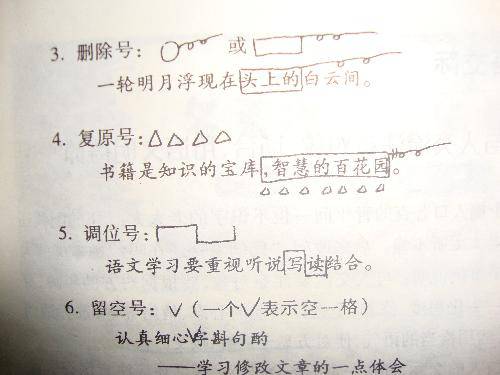 3. 删除号: 或
一轮明月浮现在头上的白云间。
4. 复原号:△△△△
书籍是知识的宝库,智慧的百花园。
△△△△△△△
5. 调位号:
语文学习要重视听说写读结合。
6. 留空号:∨(一个∨表示空一格)
认真细心∨字斟句酌
——学习修改文章的一点体会